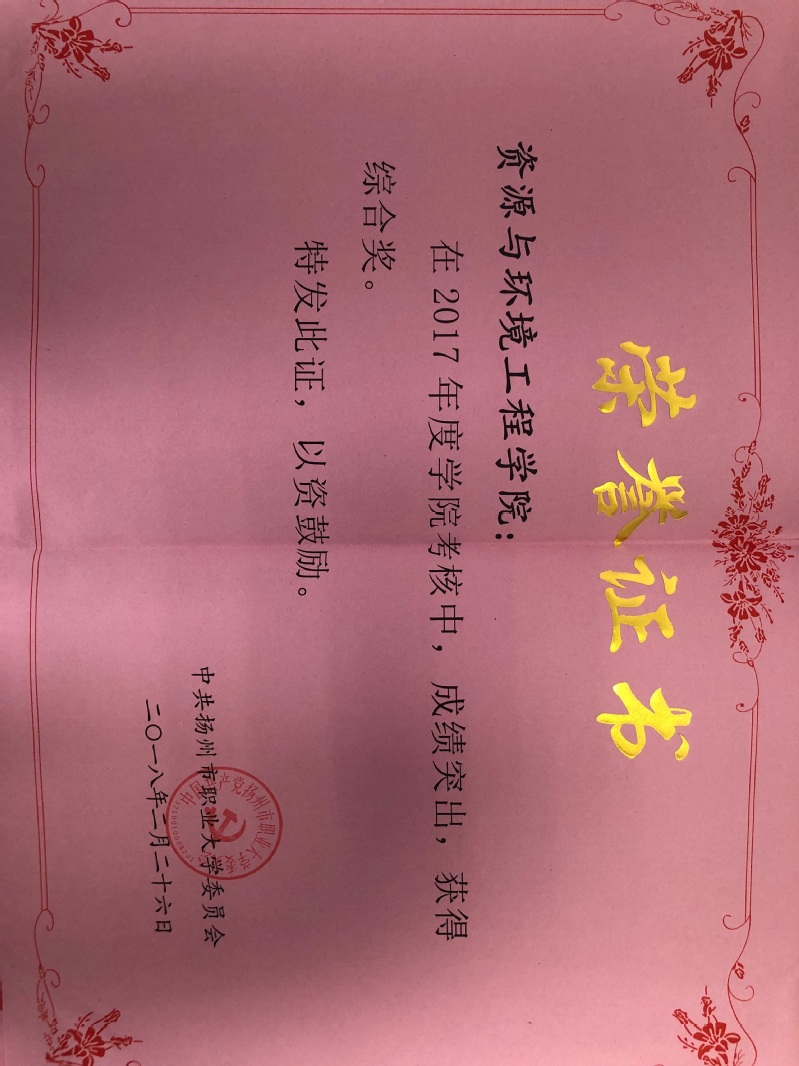 荣誉证书
资源与环境工程学院：
在2017年度学院考核中，成绩突出，获得
综合奖。
特发此证，以资鼓励。
中共扬州市职业大学委员会
二〇一八年二月二十六日